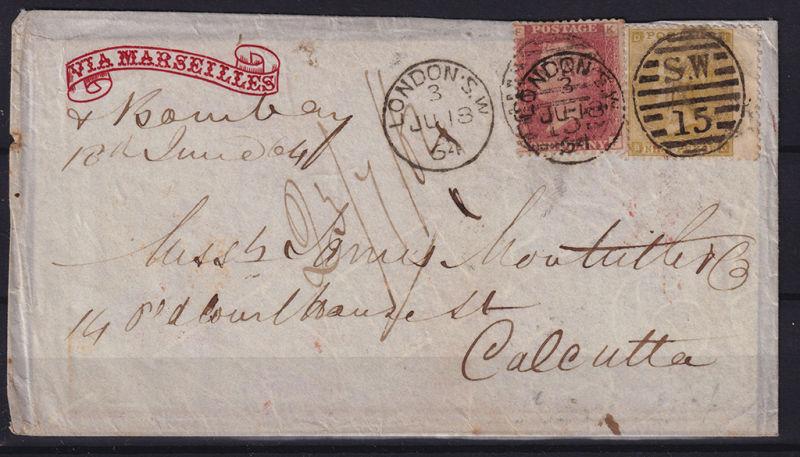 VIA MARSEILLES
& Bombay
18th June 64
LONDON·S.W
3
JU 18
64
POSTAGE
LONDON·S.W
3
JU 18
64
S.W
15
Messrs James & Co
14 Old Court house St
Calcutta